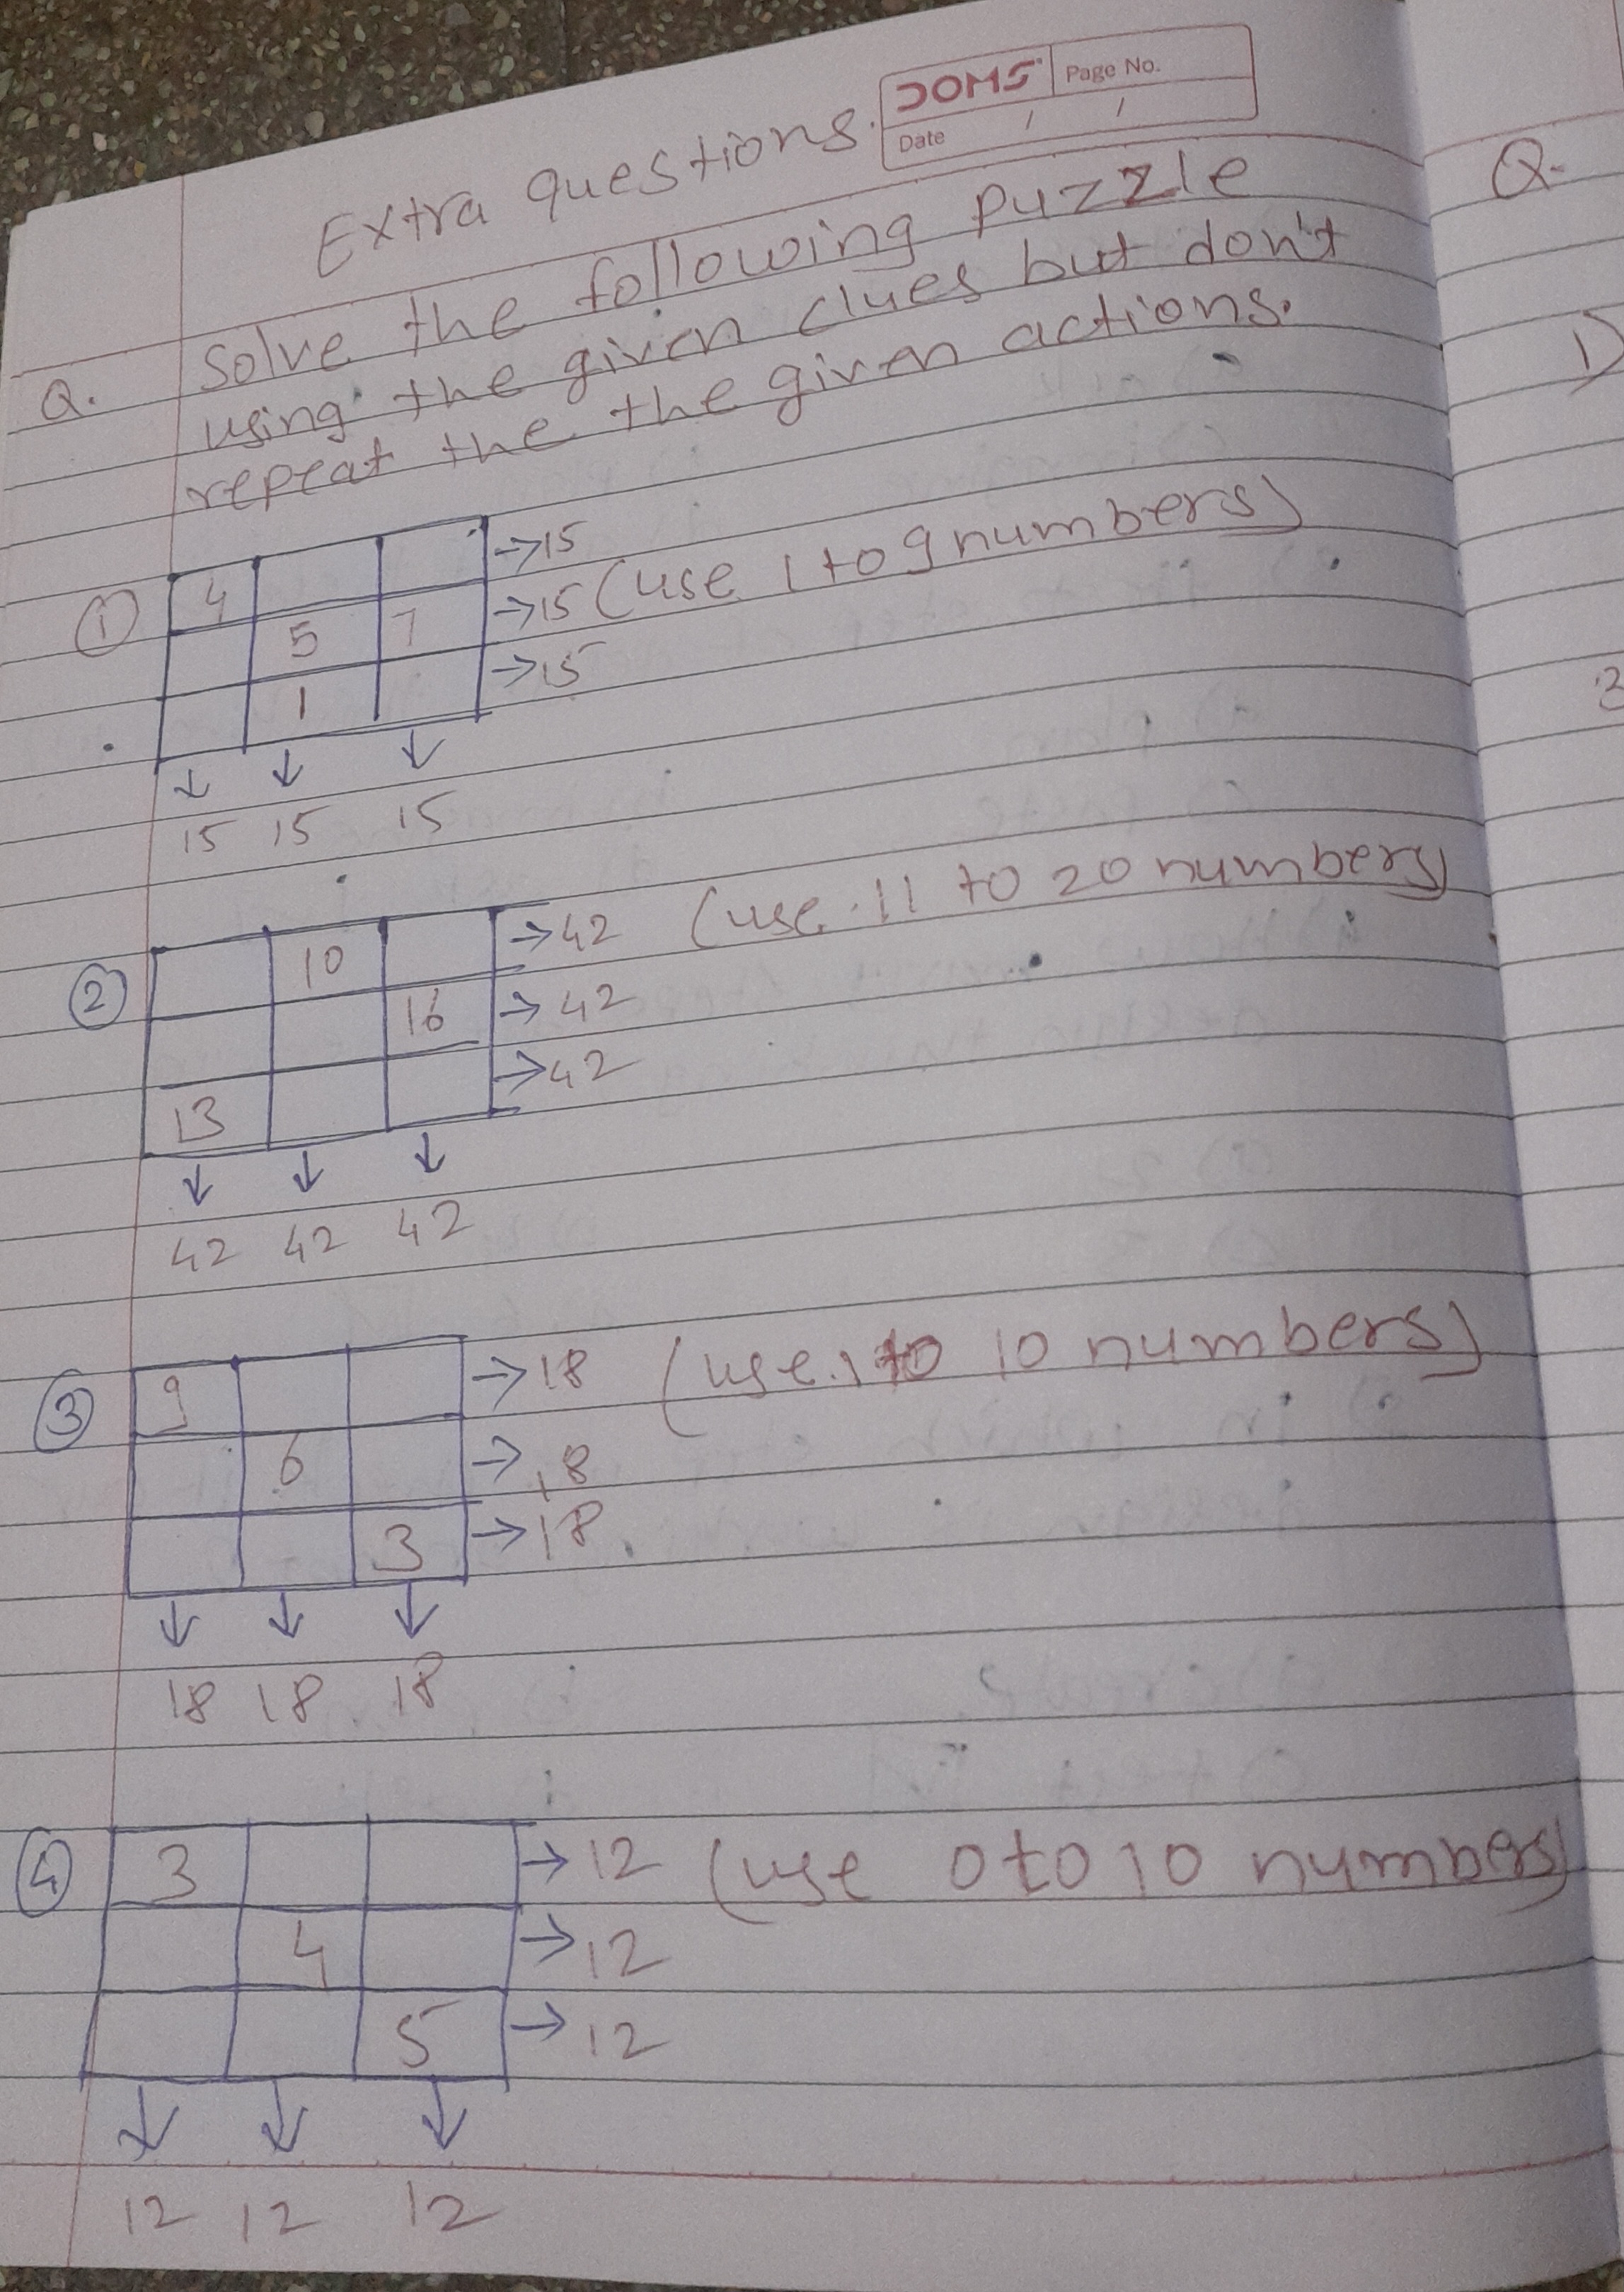 DOMS Page No.
Date / /
Extra questions.
Q. Solve the following puzzle
using the given clues but don't
repeat the the given actions.
① 4 →15
5 7 →15 (use 1 to 9 numbers)
1 →15
↓ ↓ ↓
15 15 15
② 10 →42 (use 11 to 20 numbers)
16 →42
13 →42
↓ ↓ ↓
42 42 42
③ 9 →18 (use 1 to 10 numbers)
6 →18
3 →18
↓ ↓ ↓
18 18 18
④ 3 →12 (use 0 to 10 numbers)
4 →12
5 →12
↓ ↓ ↓
12 12 12
Q.
1)